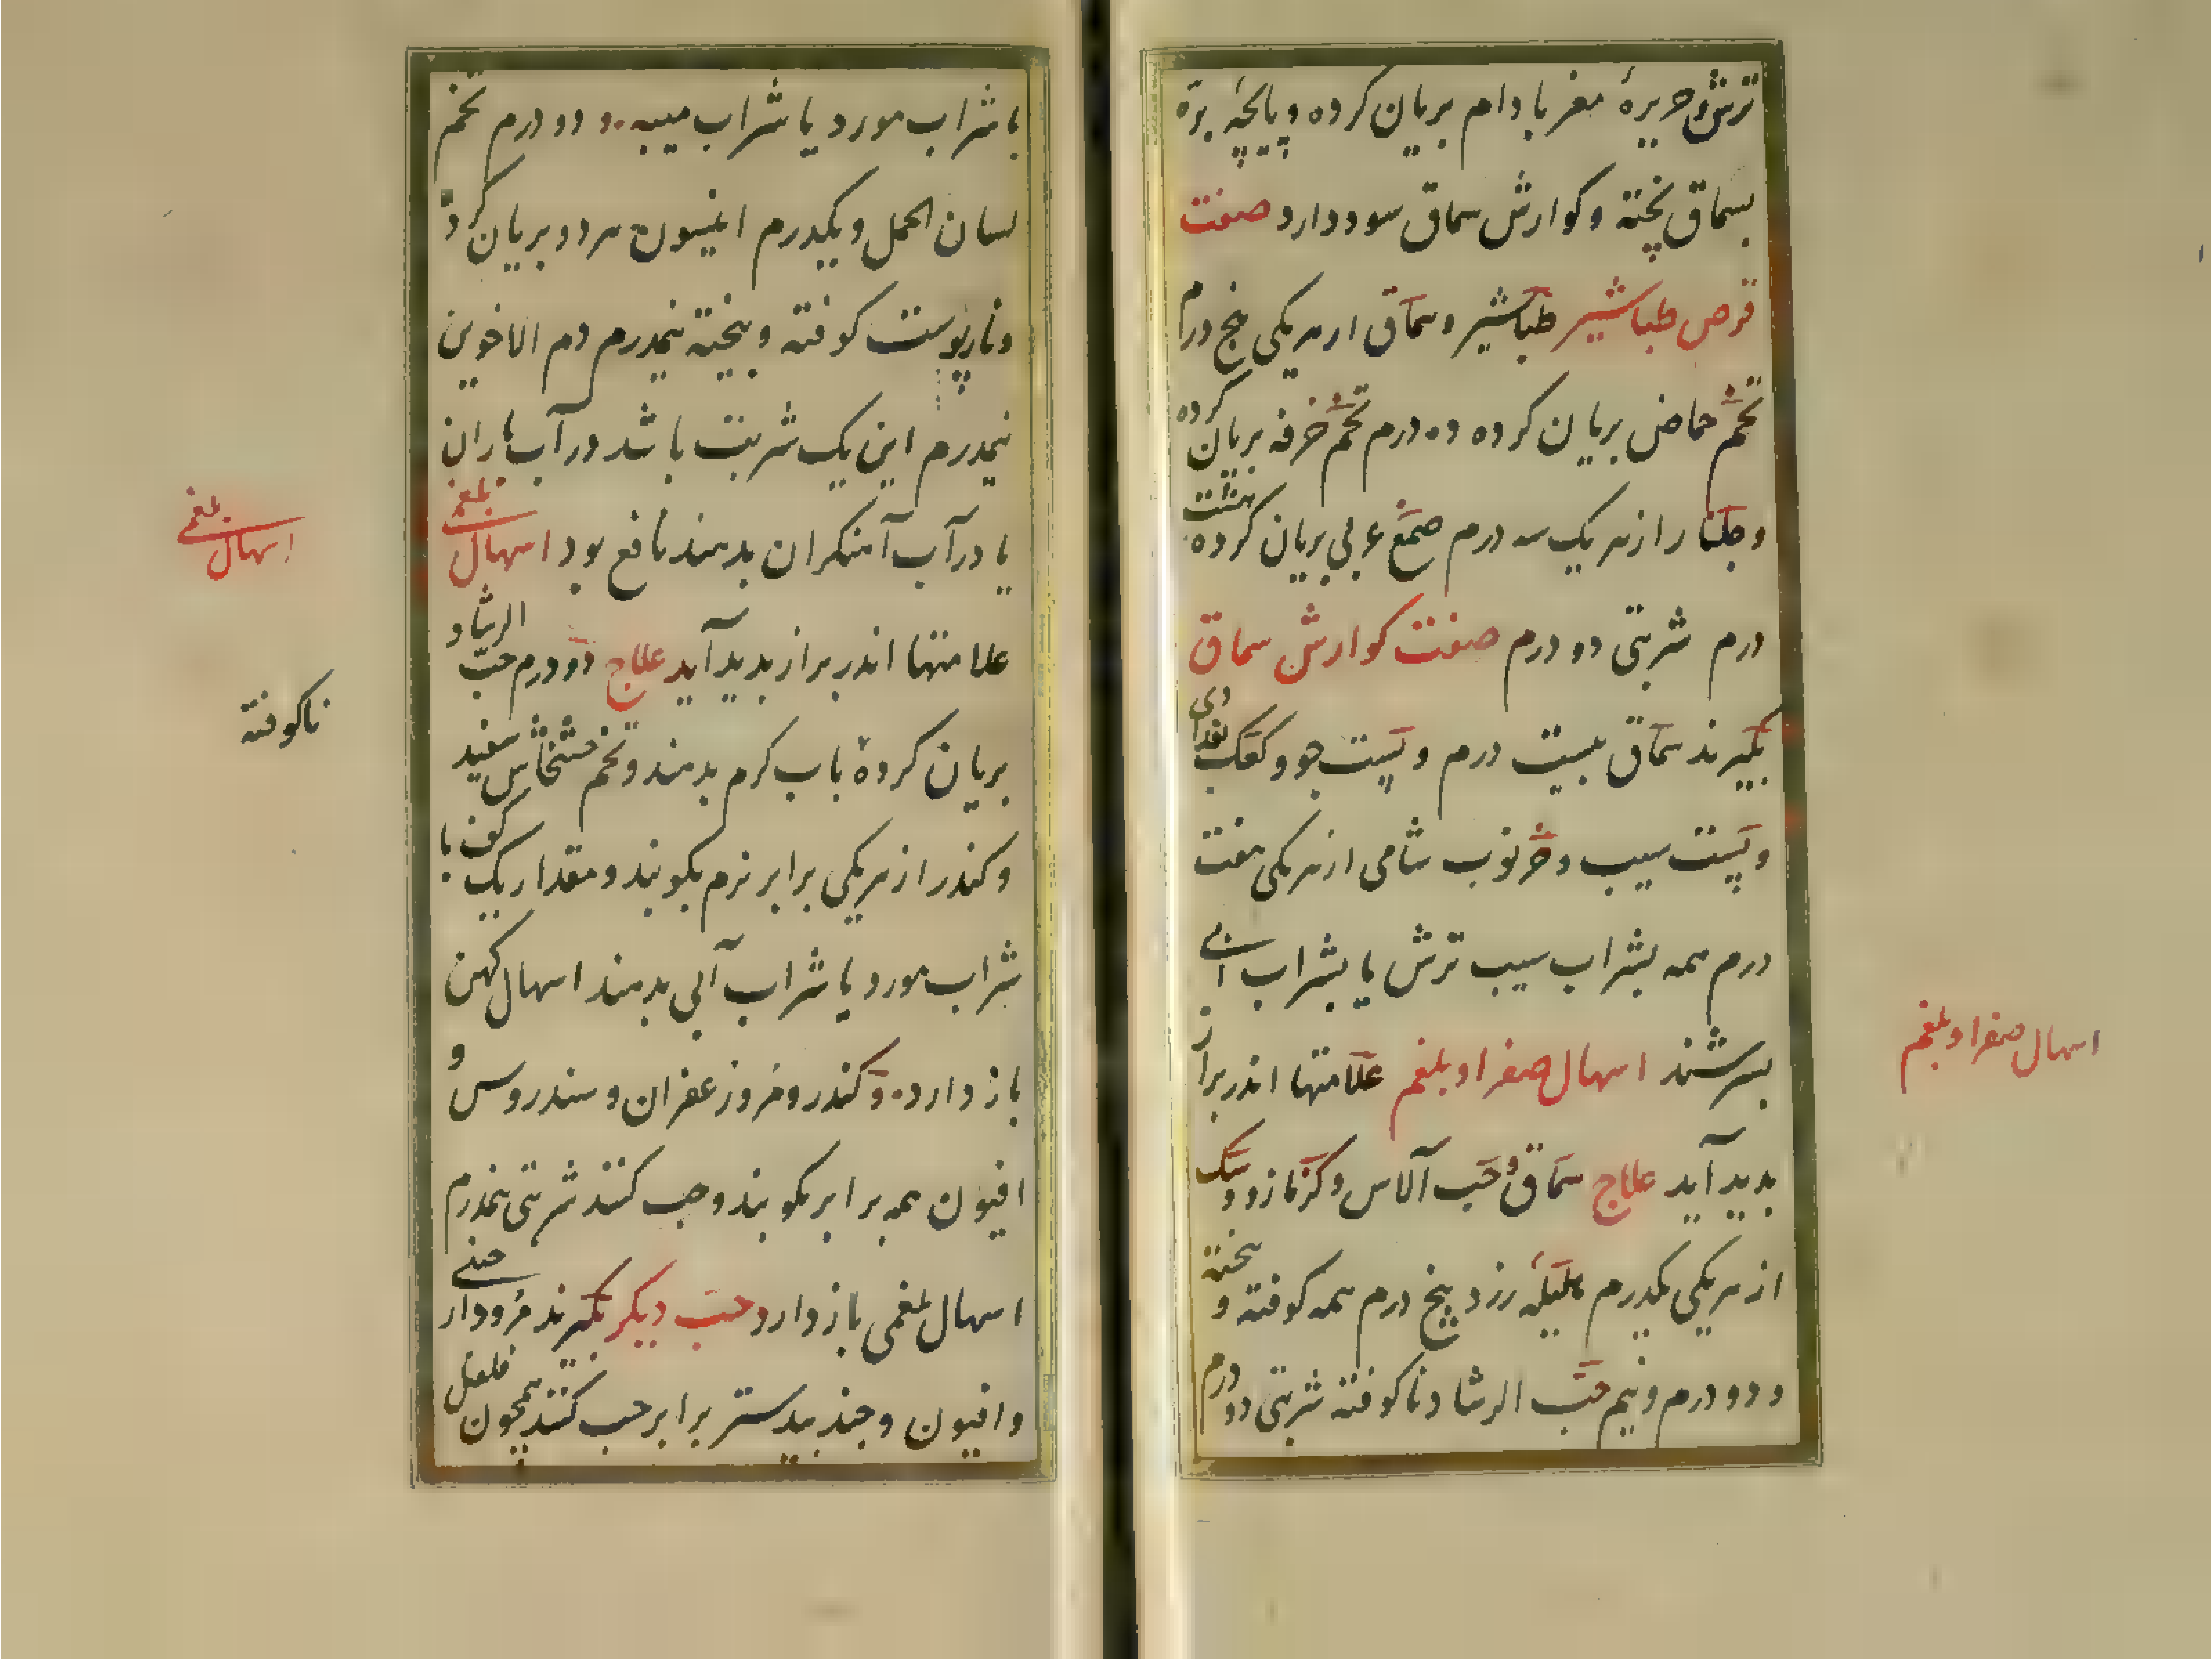 ترش و حریرهٔ مغز بادام بریان کرده و پایچهٔ بزه
بسماق پخته و کوارش سماق سود دارد صفت
قرص طباشیر طباشیر و سماق از هر یکی پنج درم
تخم حماض بریان کرده ده درم تخم خرفه بریان کرده
و جلنار از هر یک سه درم صمغ عربی بریان کرده هشت
درم شربتی دو درم صفت کوارش سماق
بکیرند سماق بیست درم و پست جو و کعک بغدادی
و پست سیب و خرنوب شامی از هر یکی هفت
درم همه بشراب سیب ترش یا بشراب آبی
بسرشند اسهال صفرا و بلغم علامتها اندر براز
بدید آید علاج سماق و حب آلاس و کزمازو و سک
از هر یکی یکدرم هلیله زرد پنج درم همه کوفته و بیخته
و دو درم و نیم حب الرشاد ناکوفته شربتی دو درم
اسهال صفرا و بلغم
با شراب مورد یا شراب میبه و دو درم تخم
لسان الحمل و یکدرم انیسون هر دو بریان کرده
و نارپوست کوفته و بیخته نیمدرم دم الاخوین
نیمدرم این یک شربت باشد در آب باران
یا در آب آهنکران بدهند نافع بود اسهال بلغمی
علامتها اندر براز بدید آید علاج دو درم حب الرشاد
بریان کرده باب کرم بدهند و تخم خشخاش سفید
و کندر از هر یکی برابر نرم بکوبند و مقدار یک کف با
شراب مورد یا شراب آبی بدهند اسهال کهن
باز دارد و کندر و مر و زعفران و سندروس و
افیون همه برابر بکوبند و حب کنند شربتی نیمدرم
اسهال بلغمی باز دارد حب دیکر بکیرند مر و دار
و افیون و جندبیدستر برابر حب کنند همچون فلفل
اسهال بلغمی
ناکوفته